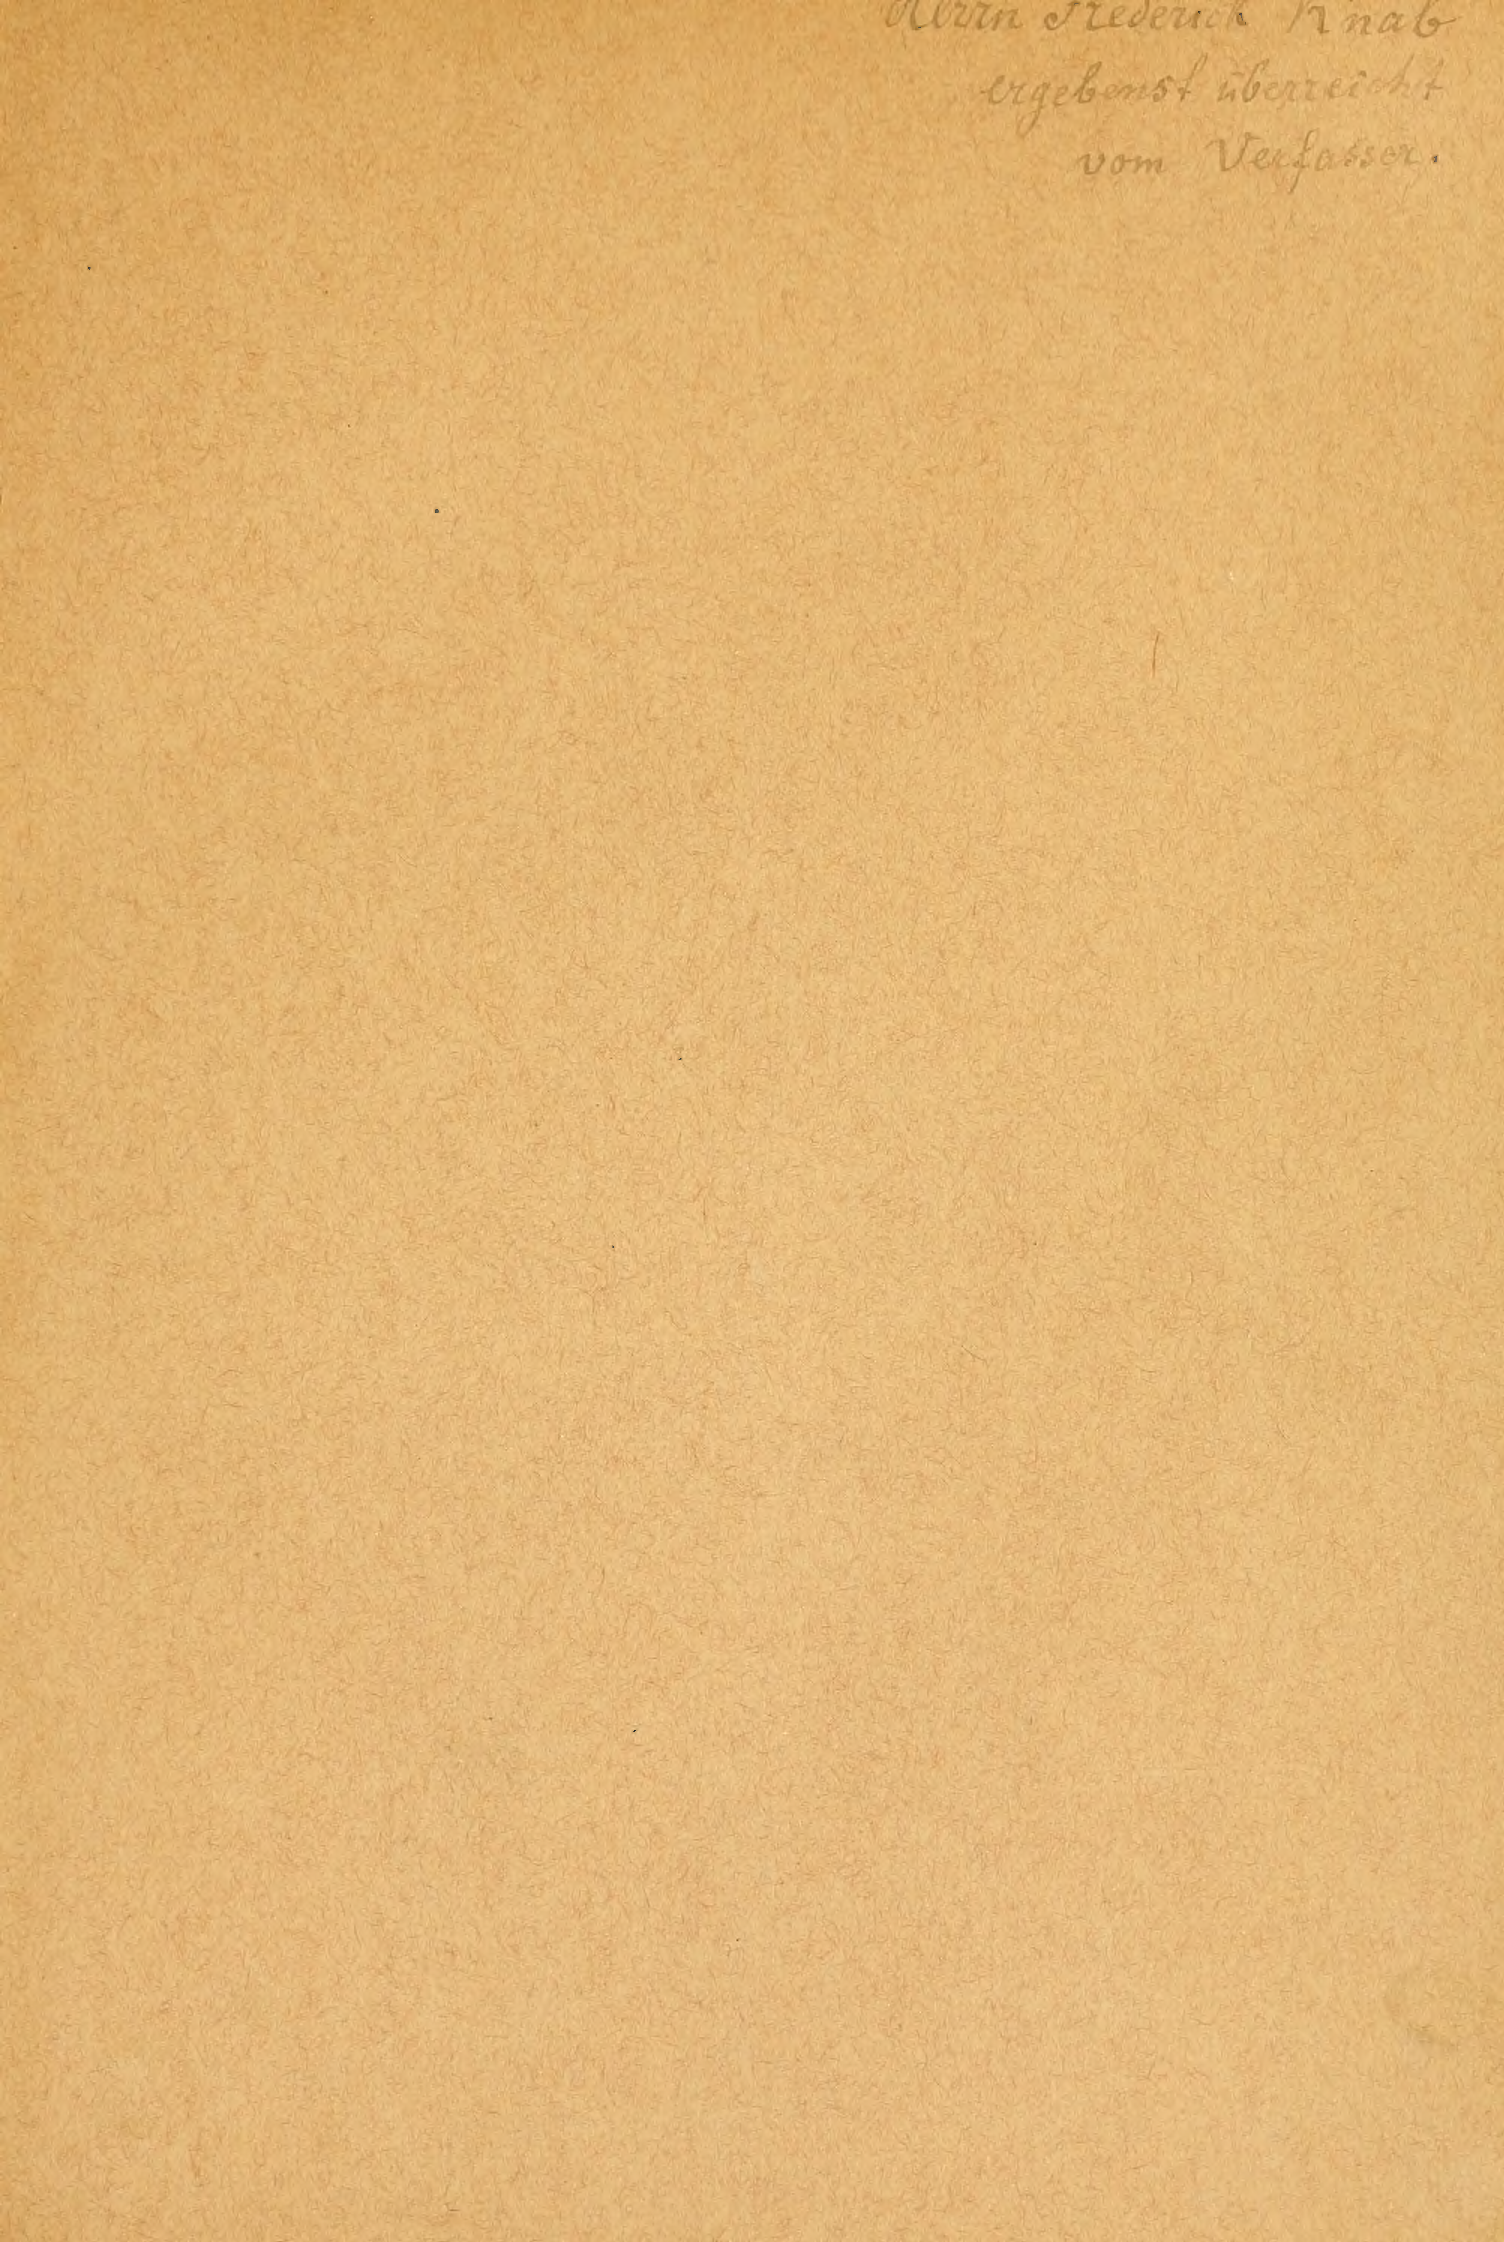 Herrn Frederick Knab
ergebenst überreicht
vom Verfasser.